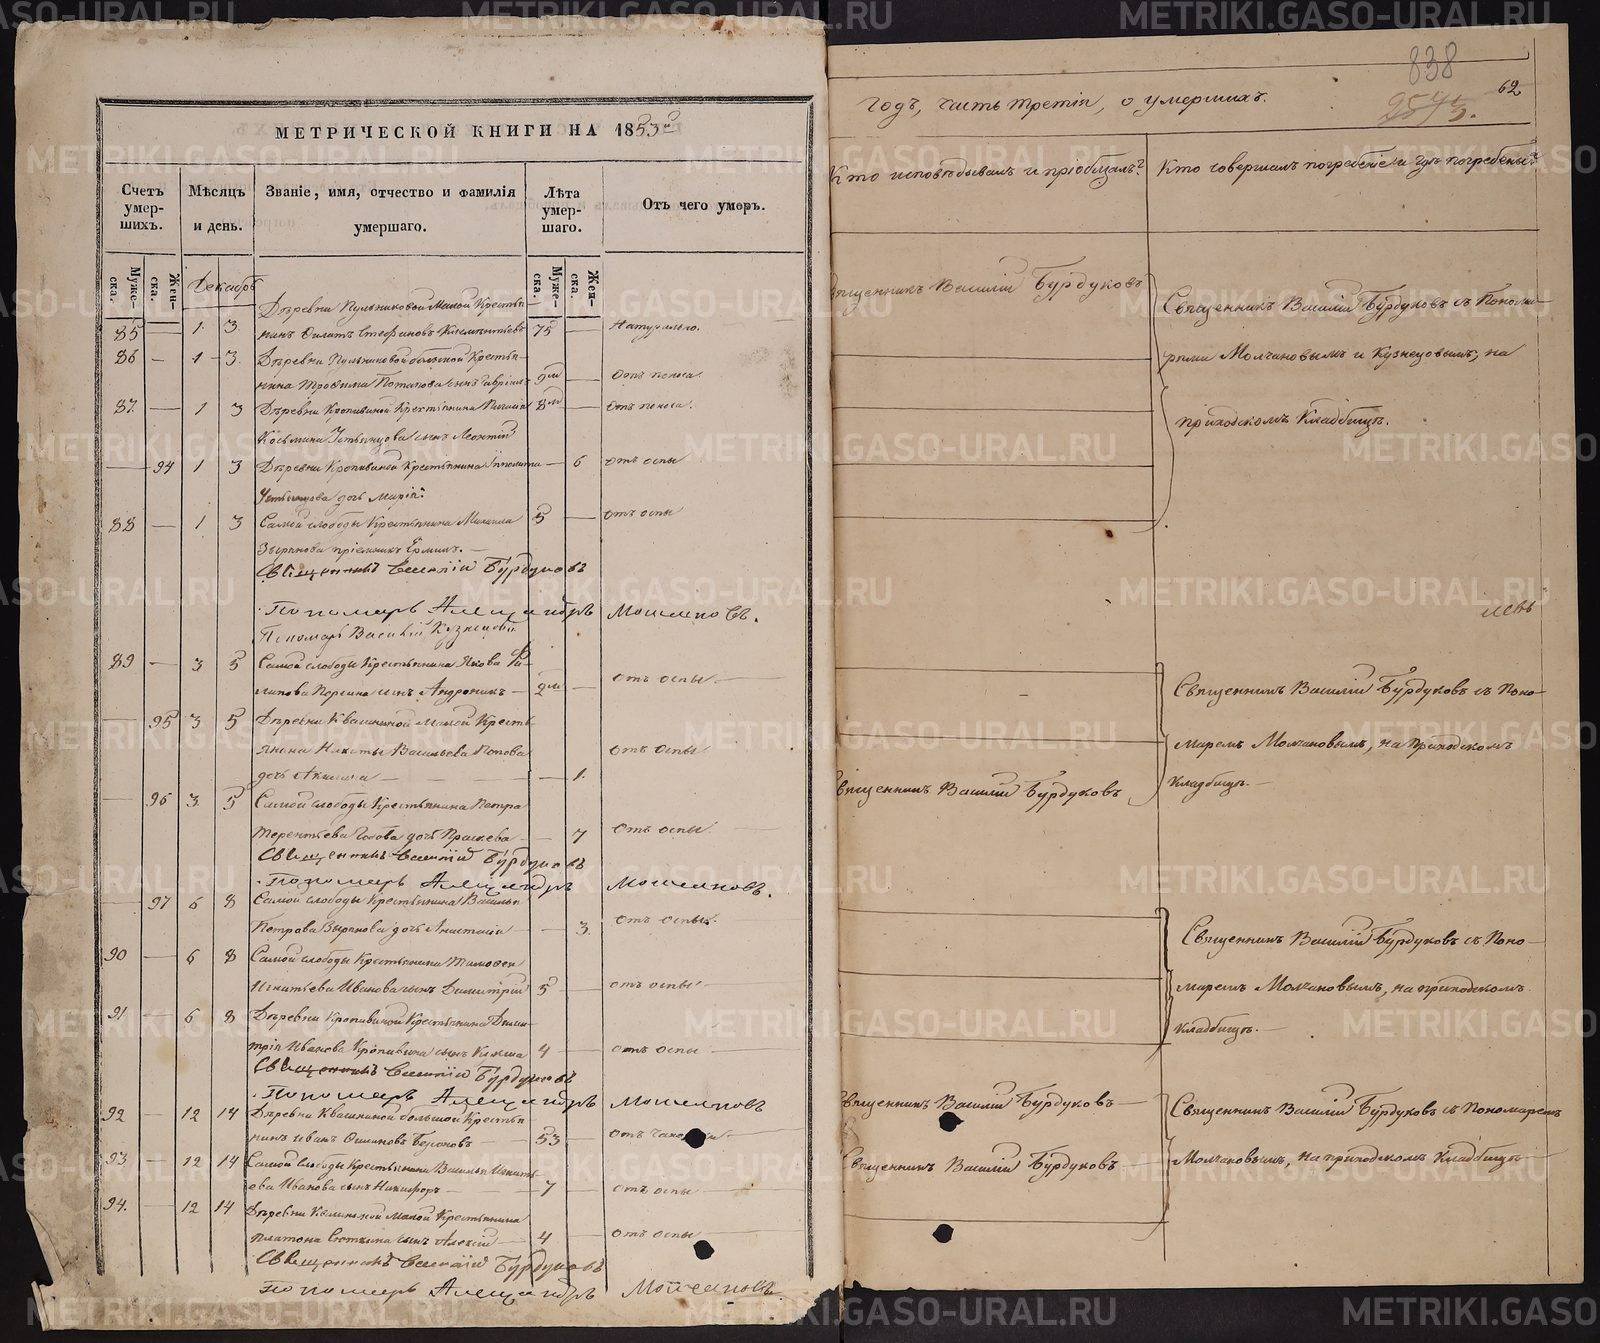 МЕТРИЧЕСКОЙ КНИГИ НА 1853й
Счетъ умер-шихъ.
Мѣсяцъ и день.
Званіе, имя, отчество и фамилія умершаго.
Лѣта умер-шаго.
Отъ чего умеръ.
Муже-ска.
Жен-ска.
Муже-ска.
Жен-ска.
Декабрь
Деревни Пульниковой Малой Крестья-
85 — 1. 3. нинъ Филатъ Стефановъ 75 — Натурально.
86 — 1 3. Деревни Пульниковой большой Крестья-
нина Трофима Потапова сынъ 9м — Отъ поноса.
87. — 1 3 Деревни Кропивиной Крестьянина 8м — Отъ поноса.
Косьмина сынъ Леонтій
— 94 1 3 Деревни Кропивиной Крестьянина Ипполита — 6 отъ оспы
дочь Марія.
88 — 1 3 Самой слободы Крестьянина Михаила 5 — отъ оспы
Зырянова пріемникъ Ермилъ. —
Священникъ Василій Бурдуковъ
Пономарь Александръ Молчановъ.
Пономарь Василій Кузнецовъ
89 — 3 5 Самой слободы Крестьянина Якова Фи-
липова сынъ Андроникъ — 2м — отъ оспы —
— 95 3 5 Деревни Квашниной Малой Кресть-
янина Никиты Васильева Попова отъ оспы
дочь — 1.
— 96 3. 5 Самой слободы Крестьянина Петра
Терентьева дочь — 7 отъ оспы.
Священникъ Василій Бурдуковъ
Пономарь Александръ Молчановъ.
— 97 6 8 Самой слободы Крестьянина Василья
Петрова дочь Анастасія — 3. отъ оспы.
90 — 6 8 Самой слободы Крестьянина Тимофея
Игнатьева Иванова сынъ Димитрій 5 — отъ оспы
91 — 6 8 Деревни Кропивиной Крестьянина Дими-
трія Иванова Кропивина сынъ 4 — отъ оспы
Священникъ Василій Бурдуковъ
Пономарь Александръ Молчановъ
92 — 12 14 Деревни Квашниной большой Крестья-
нинъ Иванъ — 53 — отъ
93. — 12 14 Самой слободы Крестьянина Василья Игнать-
ева Иванова сынъ Никифоръ — 7 — отъ оспы
94. — 12 14 Деревни Малой Крестьянина
Платона сынъ Алексій — 4 — отъ оспы
Священникъ Василій Бурдуковъ
Пономарь Александръ Молчановъ
838
62
годъ, часть третія, о умершихъ.
Кто исповѣдывалъ и пріобщалъ?
Кто совершалъ погребеніе и гдѣ погребены?
Священникъ Василій Бурдуковъ
Священникъ Василій Бурдуковъ съ Понома-
рями Молчановымъ и Кузнецовымъ, на
приходскомъ Кладбищѣ.
Священникъ Василій Бурдуковъ съ Поно-
Священникъ Василій Бурдуковъ
маремъ Молчановымъ, на Приходскомъ
Кладбищѣ. —
Священникъ Василій Бурдуковъ съ Поно-
маремъ Молчановымъ, на приходскомъ
Кладбищѣ. —
Священникъ Василій Бурдуковъ —
Священникъ Василій Бурдуковъ съ Пономаремъ
Священникъ Василій Бурдуковъ —
Молчановымъ, на приходскомъ Кладбищѣ —
METRIKI.GASO-URAL.RU